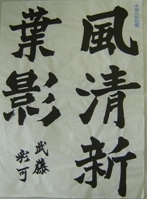 風清新
葉影
武藤
彩可